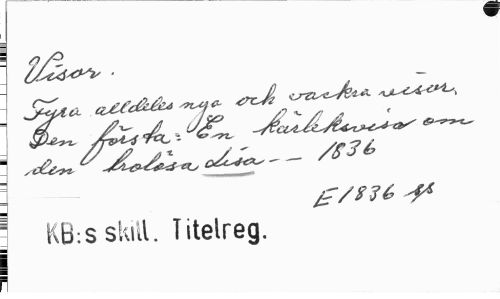 Visor.
Fyra alldeles nya och vackra visor.
Den första: En kärleksvisa om
den trolösa Lisa -- 1836
E1836 sp
KB:s skill. Titelreg.